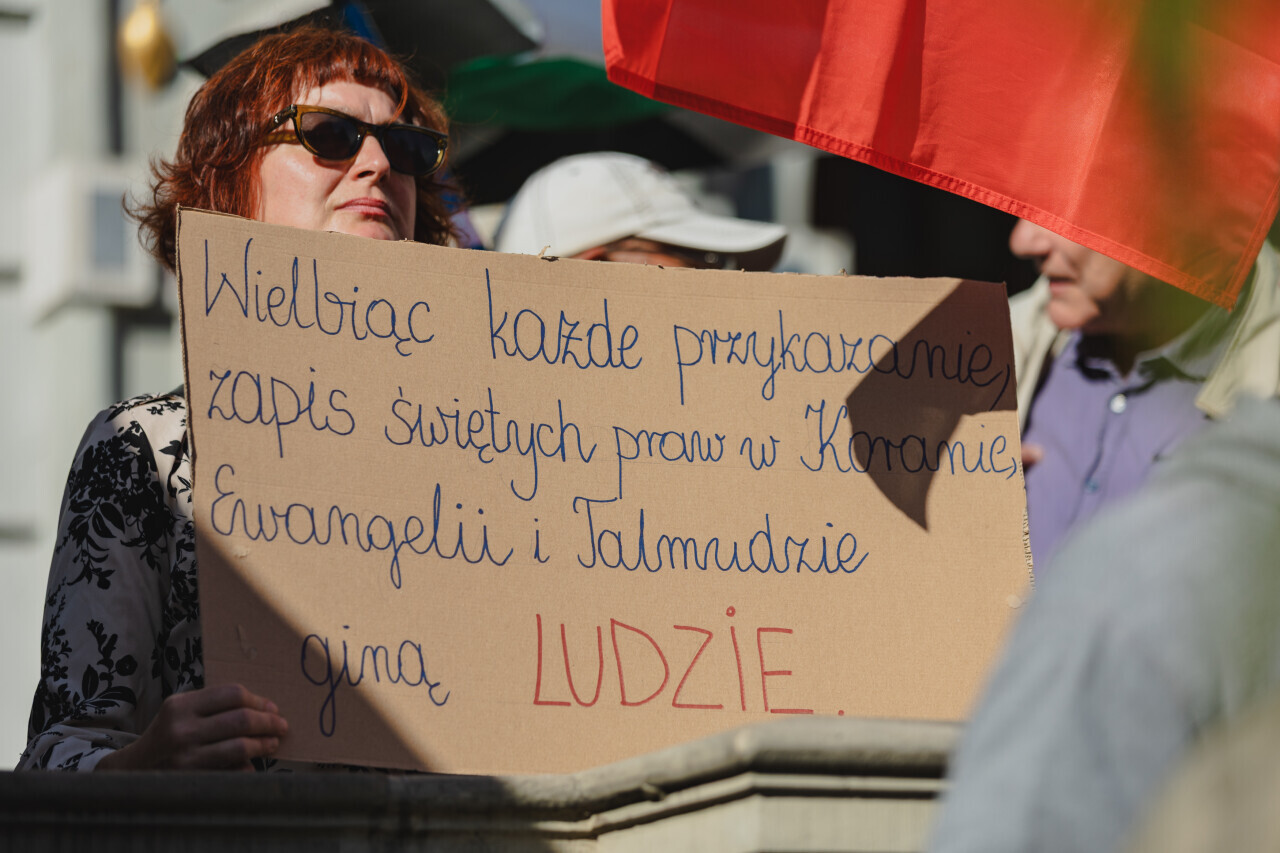 Wielbiąc każde przykazanie,
zapis świętych praw w Koranie,
Ewangelii i Talmudzie
giną LUDZiE.